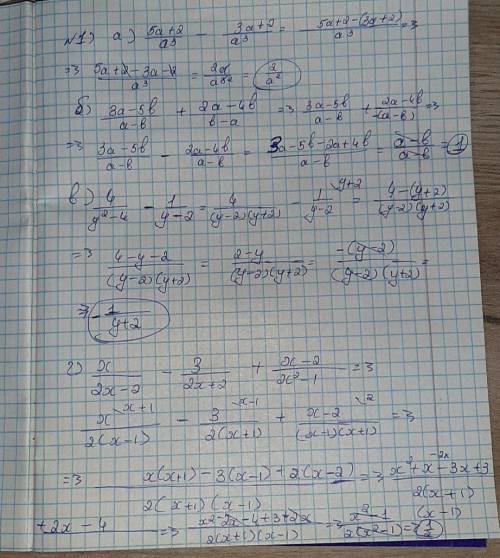 №1) а) (5a+2)/a³ - (3a+2)/a³ = (5a+2-(3a+2))/a³ =>
=> (5a+2-3a-2)/a³ = 2a/a³ = 2/a²
б) (3a-5b)/(a-b) + (2a-4b)/(b-a) => (3a-5b)/(a-b) + (2a-4b)/-(a-b) =>
=> (3a-5b)/(a-b) - (2a-4b)/(a-b) = (3a-5b-2a+4b)/(a-b) = (a-b)/(a-b) = 1
в) 4/(y²-4) - 1/(y-2) = 4/((y-2)(y+2)) - 1/(y-2) \y+2 = (4-(y+2))/((y-2)(y+2))
=> (4-y-2)/((y-2)(y+2)) = (2-y)/((y-2)(y+2)) = -(y-2)/((y-2)(y+2)) =
=> -1/(y+2)
г) x/(2x-2) - 3/(2x+2) + (x-2)/(x²-1) =>
x/(2(x-1)) \x+1 - 3/(2(x+1)) \x-1 + (x-2)/((x-1)(x+1)) \2 =>
=> (x(x+1)-3(x-1)+2(x-2))/(2(x+1)(x-1)) => (x²+x-3x+3 -2x)/(2(x+1)(x-1))
+2x-4 => (x²-2x-4+3+2x)/(2(x+1)(x-1)) => (x²-1)/(2(x²-1)) = 1/2